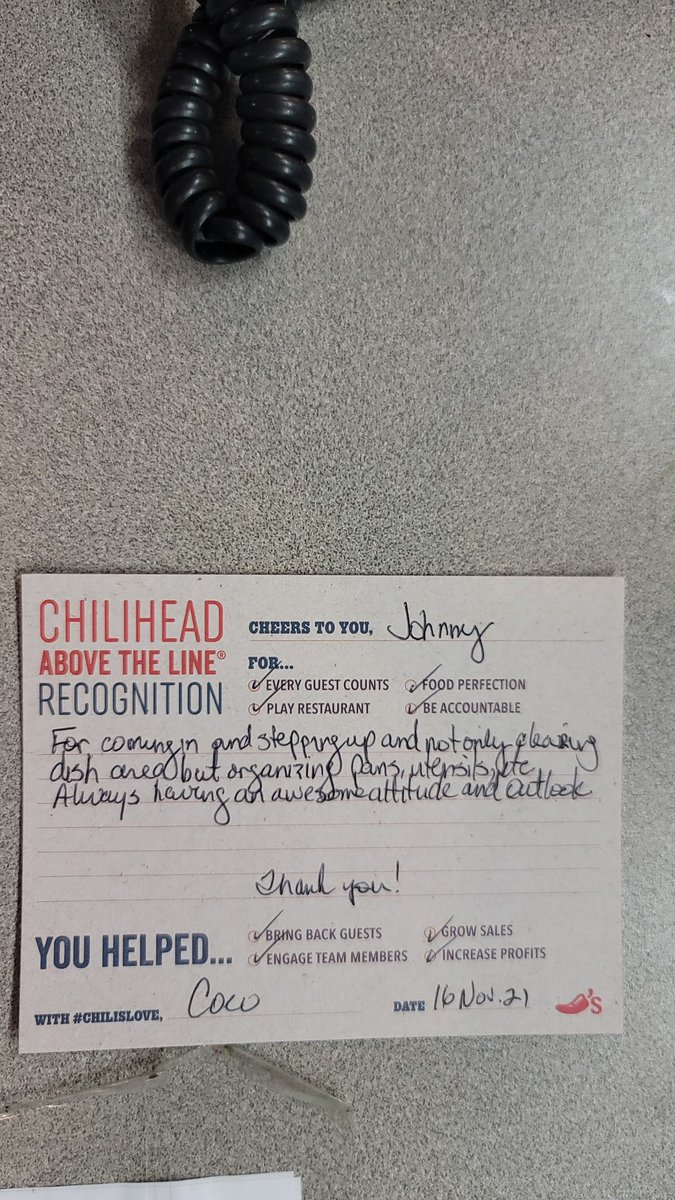 CHILIHEAD
ABOVE THE LINE®
RECOGNITION
CHEERS TO YOU, Johnny
FOR...
EVERY GUEST COUNTS
FOOD PERFECTION
PLAY RESTAURANT
BE ACCOUNTABLE
For coming in and stepping up and not only cleaning
dish area, but organizing pans, utensils, etc
Always having an awesome attitude and outlook
Thank you!
YOU HELPED...
BRING BACK GUESTS
GROW SALES
ENGAGE TEAM MEMBERS
INCREASE PROFITS
WITH #CHILISLOVE, Coco
DATE 16 Nov. 21
's